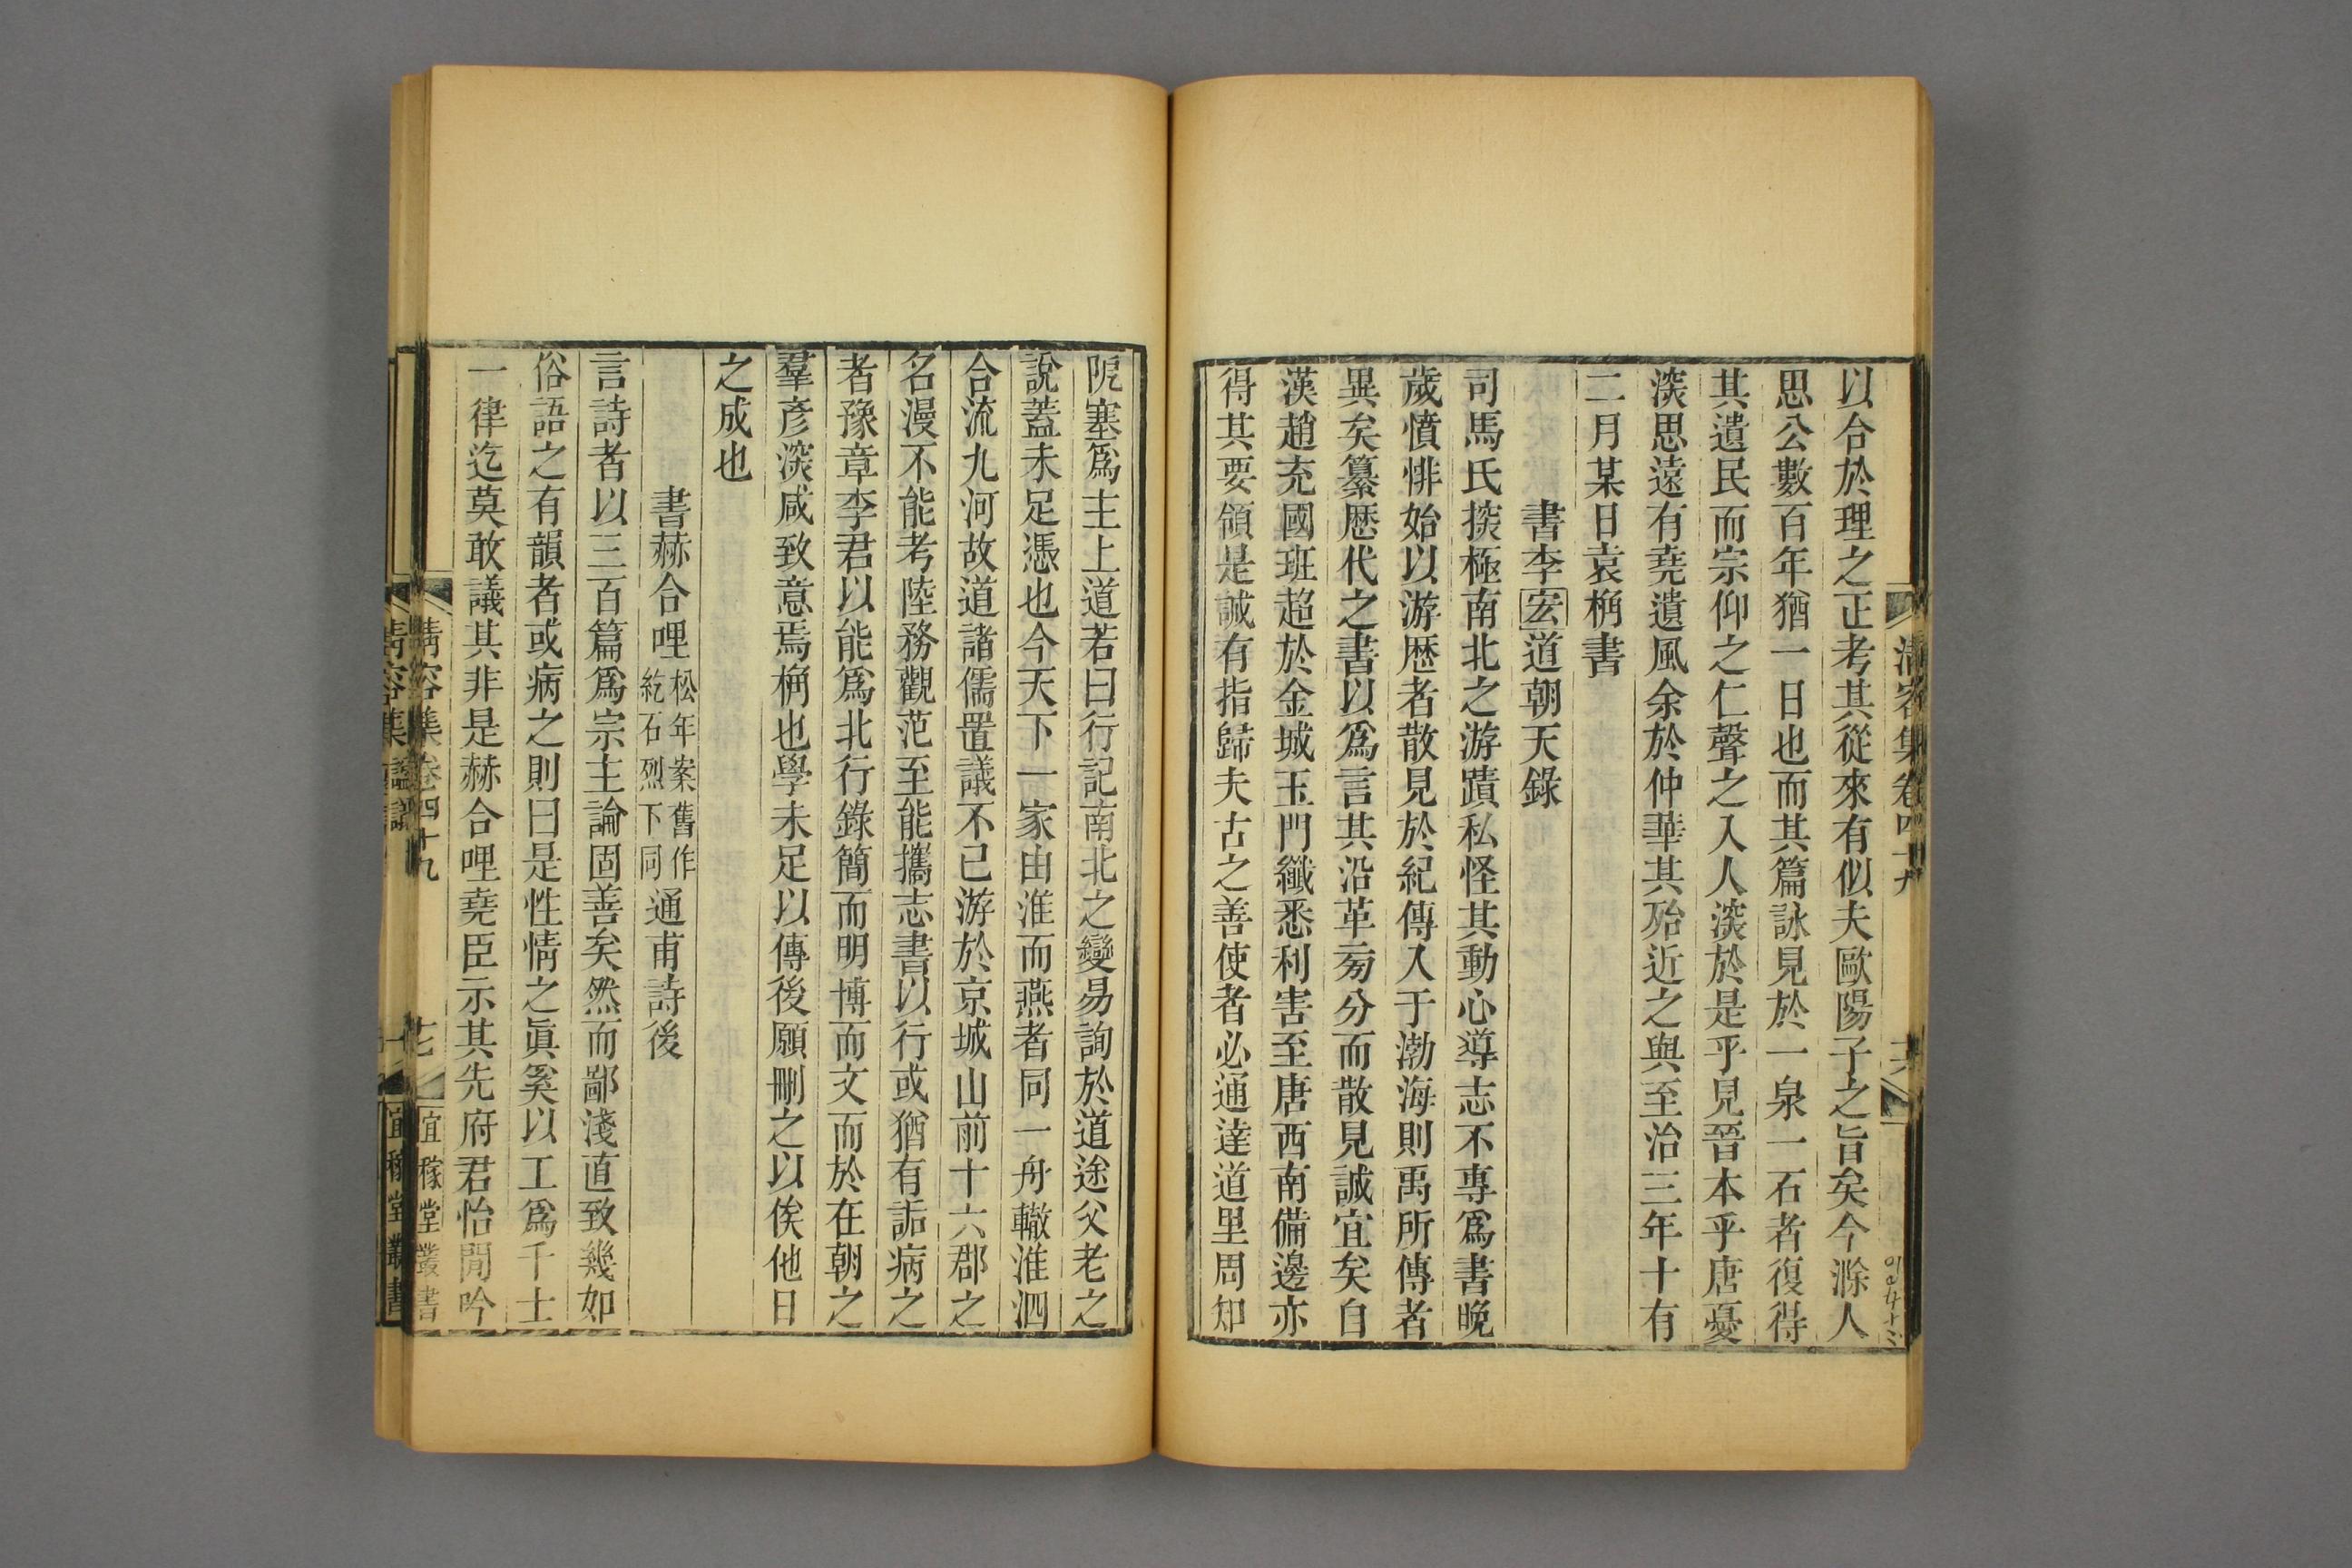 清容集卷四十九
十六
以合於理之正考其從來有似夫歐陽子之旨矣今滁人
思公數百年猶一日也而其篇詠見於一泉一石者復得
其遺民而宗仰之仁聲之入人深於是乎見晉本乎唐憂
深思遠有堯遺風余於仲華其殆近之與至治三年十有
二月某日袁桷書
書李宏道朝天錄
司馬氏探極南北之游蹟私怪其動心導志不專爲書晚
歲憤悱始以游歴者散見於紀傳入于渤海則禹所傳者
異矣纂歴代之書以爲言其沿革旁分而散見誠宜矣自
漢趙充國班超於金城玉門纖悉利害至唐西南備邊亦
得其要領是誠有指歸夫古之善使者必通達道里周知
阸塞爲主上道若曰行記南北之變易詢於道途父老之
說蓋未足憑也今天下一家由淮而燕者同一舟轍淮泗
合流九河故道諸儒置議不已游於京城山前十六郡之
名漫不能考陸務觀范至能攜志書以行或猶有詬病之
者豫章李君以能爲北行錄簡而明博而文而於在朝之
羣彥深咸致意焉桷也學未足以傳後願刪之以俟他日
之成也
書赫合哩松年案舊作紇石烈下同通甫詩後
言詩者以三百篇爲宗主論固善矣然而鄙淺直致幾如
俗語之有韻者或病之則曰是性情之眞奚以工爲千士
一律迄莫敢議其非是赫合哩堯臣示其先府君怡閒吟
清容集卷四十九
七
宜稼堂叢書
清容集
宜稼堂叢書